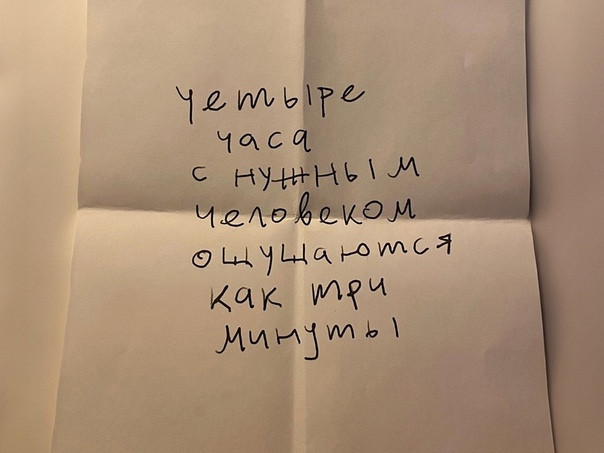 четыре
часа
с нужным
человеком
ощущаются
как три
минуты